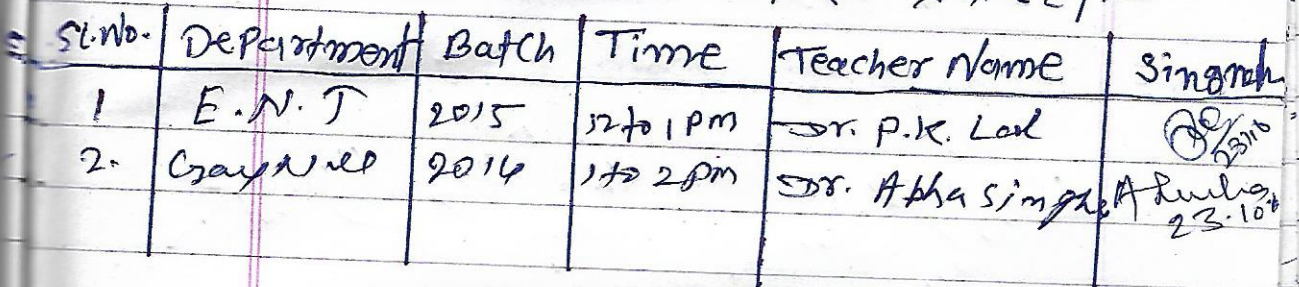 Sl.No. Department Batch Time Teacher Name Singnat
1 E.N.T 2015 12 to 1 pm Dr. P.K. Lal
2. 2014 1 to 2 pm Dr. Abha singh 23.10